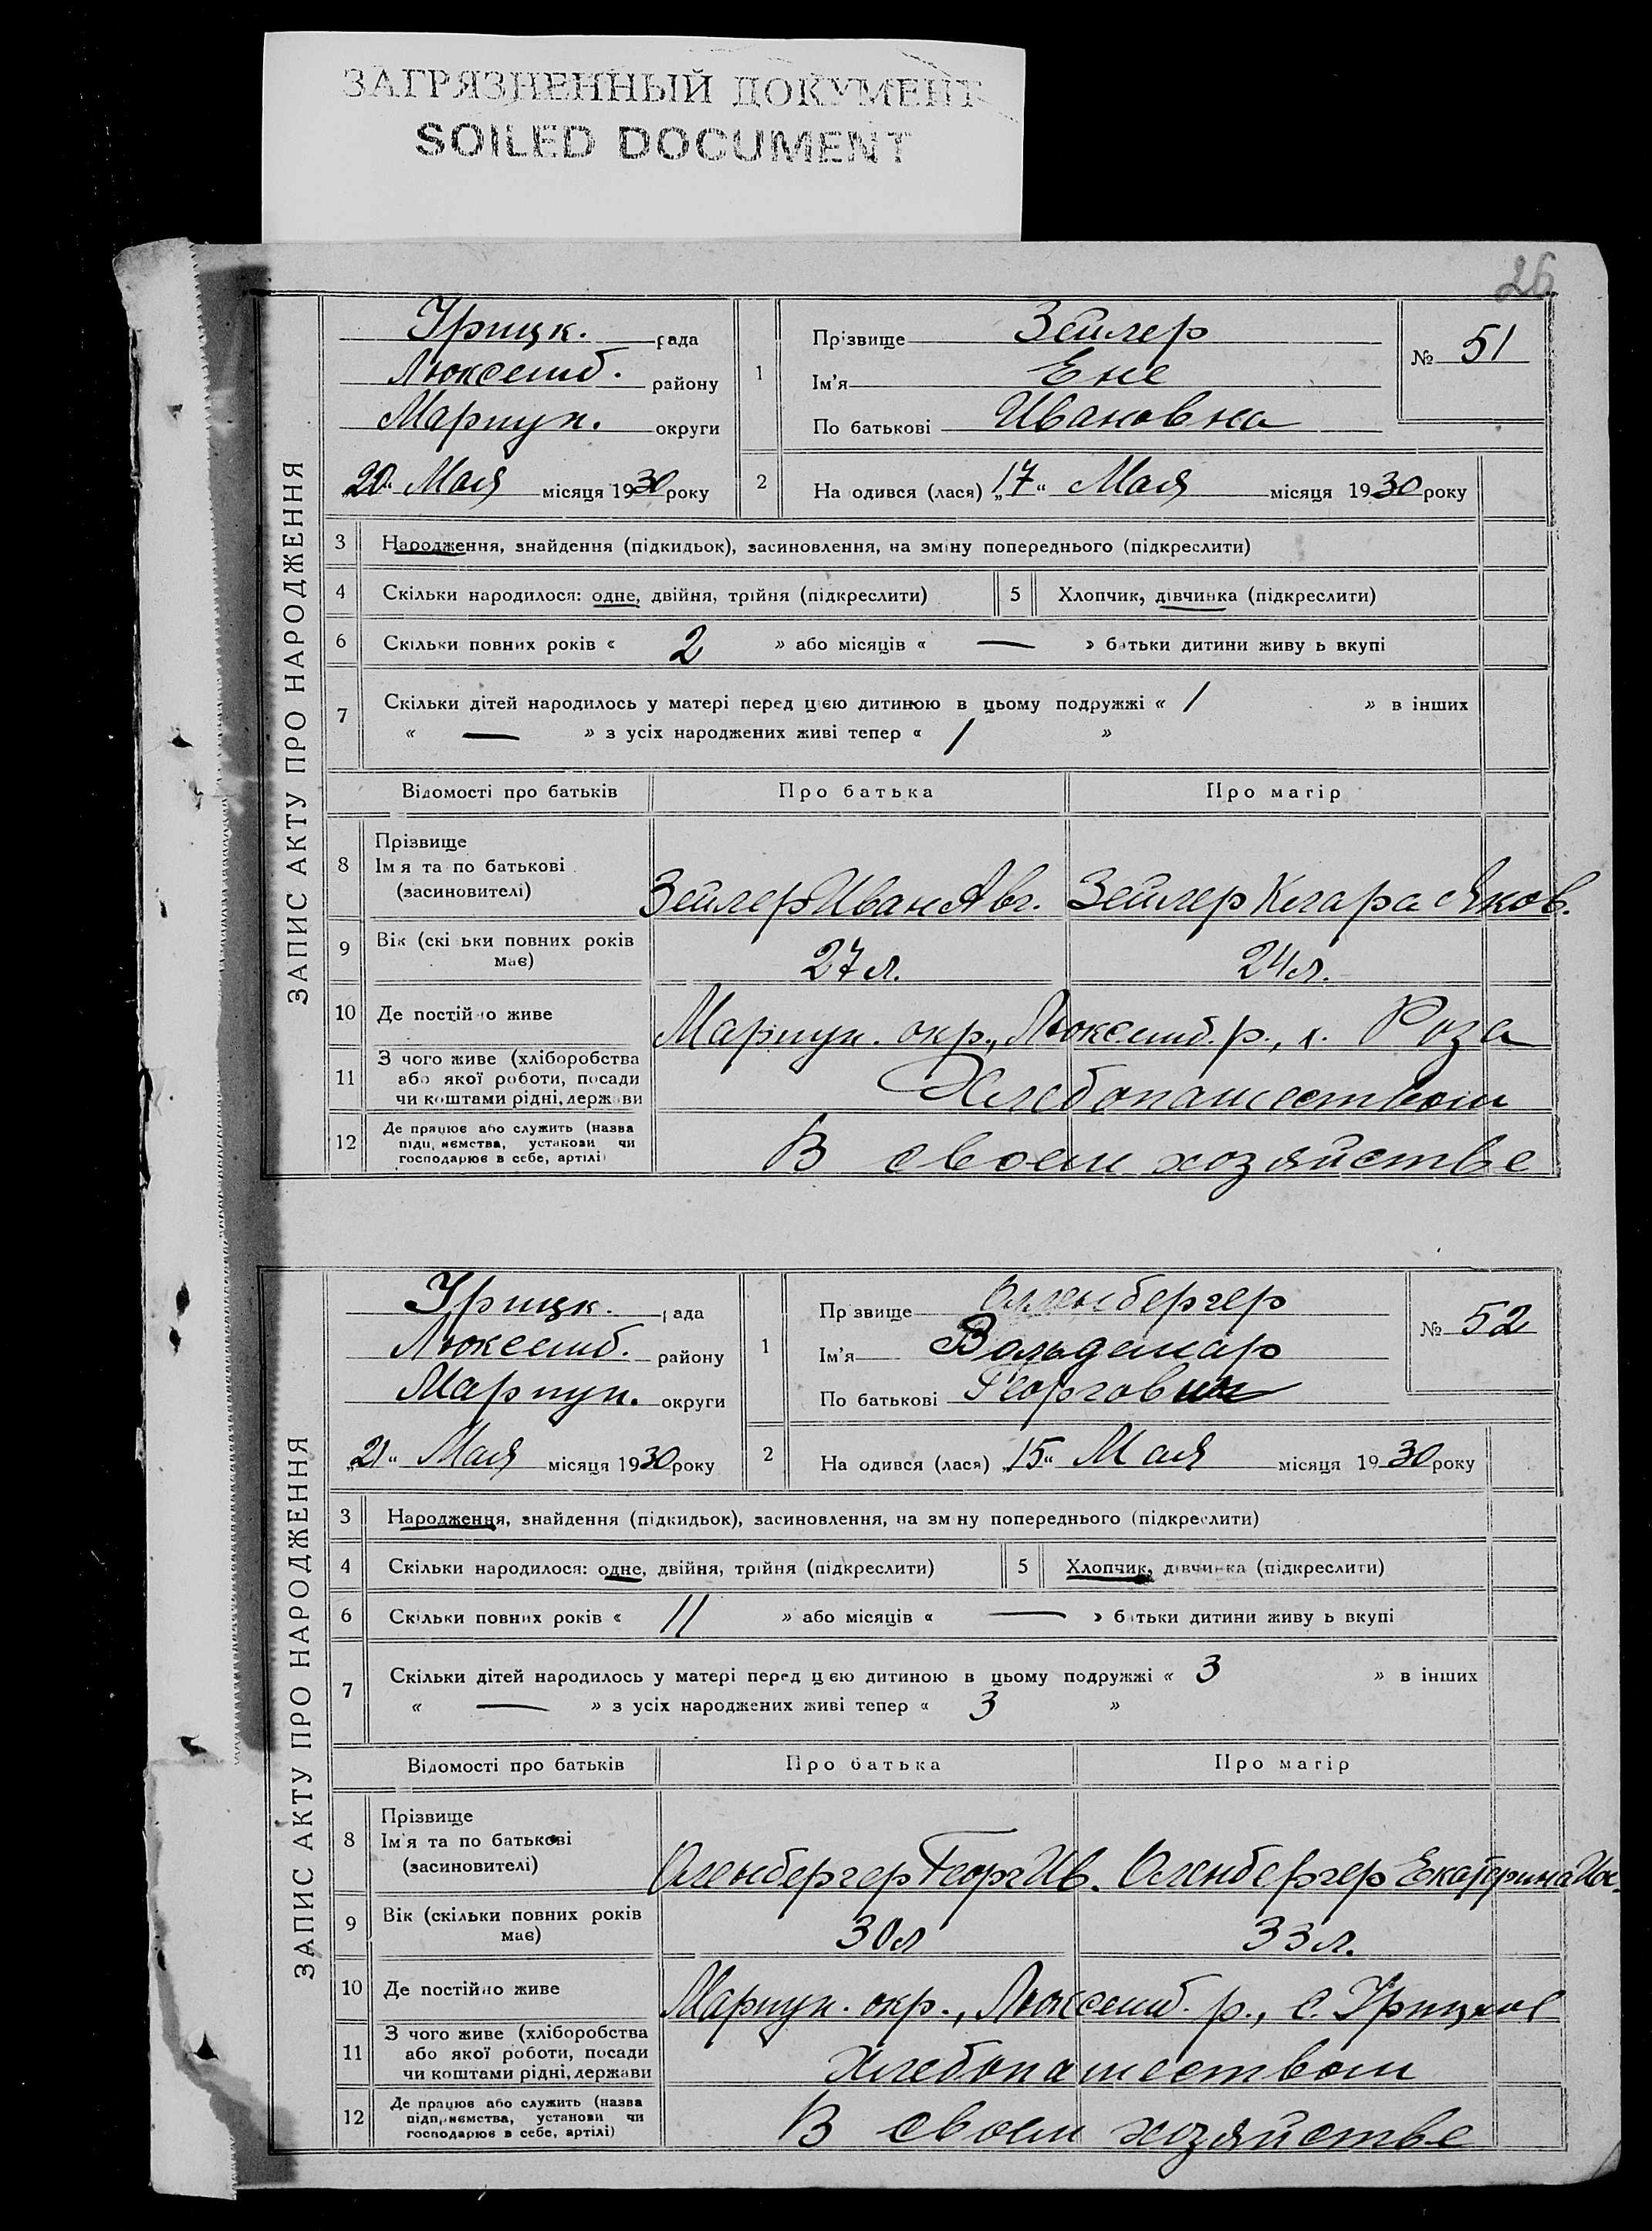 ЗАГРЯЗНЕННЫЙ ДОКУМЕНТ
SOILED DOCUMENT
26
ЗАПИС АКТУ ПРО НАРОДЖЕННЯ
Урицк. рада
Люксемб. району
Мариуп. округи
„20“ Мая місяця 1930 року
1 Прізвище Зейлер
Ім'я Ене
По батькові Ивановна
№ 51
2 На одився (лася) „17“ Мая місяця 1930 року
3 Народження, знайдення (підкидьок), засиновлення, на зміну попереднього (підкреслити)
4 Скільки народилося: одне, двійня, трійня (підкреслити) 5 Хлопчик, дівчинка (підкреслити)
6 Скільки повних років « 2 » або місяців « — » батьки дитини живу ь вкупі
7 Скільки дітей народилось у матері перед цією дитиною в цьому подружжі « 1 » в інших
« — » з усіх народжених живі тепер « 1 »
Відомості про батьків Про батька Про матір
8 Прізвище
Імя та по батькові
(засиновителі)
Зейлер Иван Авг. Зейлер Клара Яков.
9 Вік (скі ьки повних років
має)
27 л. 24 л.
10 Де постійно живе Мариуп. окр., Люксемб. р., к. Роза
11 З чого живе (хліборобства
або якої роботи, посади
чи коштами рідні, держави
Хлебопашеством
12 Де працює або служить (назва
підприємства, установи чи
господарює в себе, артілі)
В своем хозяйстве
ЗАПИС АКТУ ПРО НАРОДЖЕННЯ
Урицк. рада
Люксемб. району
Мариуп. округи
„21“ Мая місяця 1930 року
1 Пр звище Оленбергер
Ім'я Вольдемар
По батькові Георгович
№ 52
2 На одився (лася) „15“ Мая місяця 1930 року
3 Народження, знайдення (підкидьок), засиновлення, на зм ну попереднього (підкреслити)
4 Скільки народилося: одне, двійня, трійня (підкреслити) 5 Хлопчик, дівчинка (підкреслити)
6 Скільки повних років « 11 » або місяців « — » батьки дитини живу ь вкупі
7 Скільки дітей народилось у матері перед цією дитиною в цьому подружжі « 3 » в інших
« — » з усіх народжених живі тепер « 3 »
Відомості про батьків Про батька Про матір
8 Прізвище
Ім'я та по батькові
(засиновителі)
Оленбергер Георг Ив. Оленбергер Екатерина Ис.
9 Вік (скільки повних років
має)
30 л 33 л.
10 Де постійно живе Мариуп. окр., Люксемб. р., с. Урицкое
11 З чого живе (хліборобства
або якої роботи, посади
чи коштами рідні, держави
Хлебопашеством
12 Де працює або служить (назва
підприємства, установи чи
господарює в себе, артілі)
В своем хозяйстве